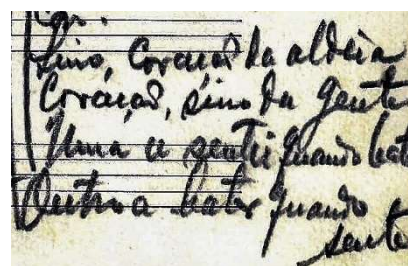 Sino, coração da aldeia
Coração, sino da gente
Uma a sentir quando bate
Outro a bater quando
sente